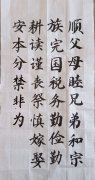 顺父母睦兄弟和宗
族完国税务勤俭勤
耕读谨丧祭慎嫁娶
安本分禁非为